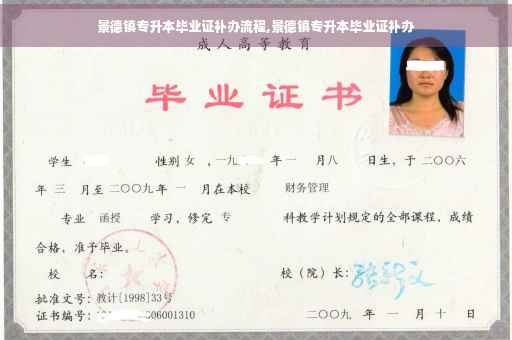 景德镇专升本毕业证补办流程,景德镇专升本毕业证补办
成人高等教育
毕业证书
学生 性别 女 ，一九 年 一 月八 日生，于 二〇〇六
年 三 月至 二〇〇九 年 一 月在本校 财务管理
专业 函授 学习，修完 专 科教学计划规定的全部课程，成绩
合格，准予毕业。
校 名： 校（院）长：
批准文号：教计[1998]33号
证书编号： 06001310 二〇〇九 年 一 月 十 日